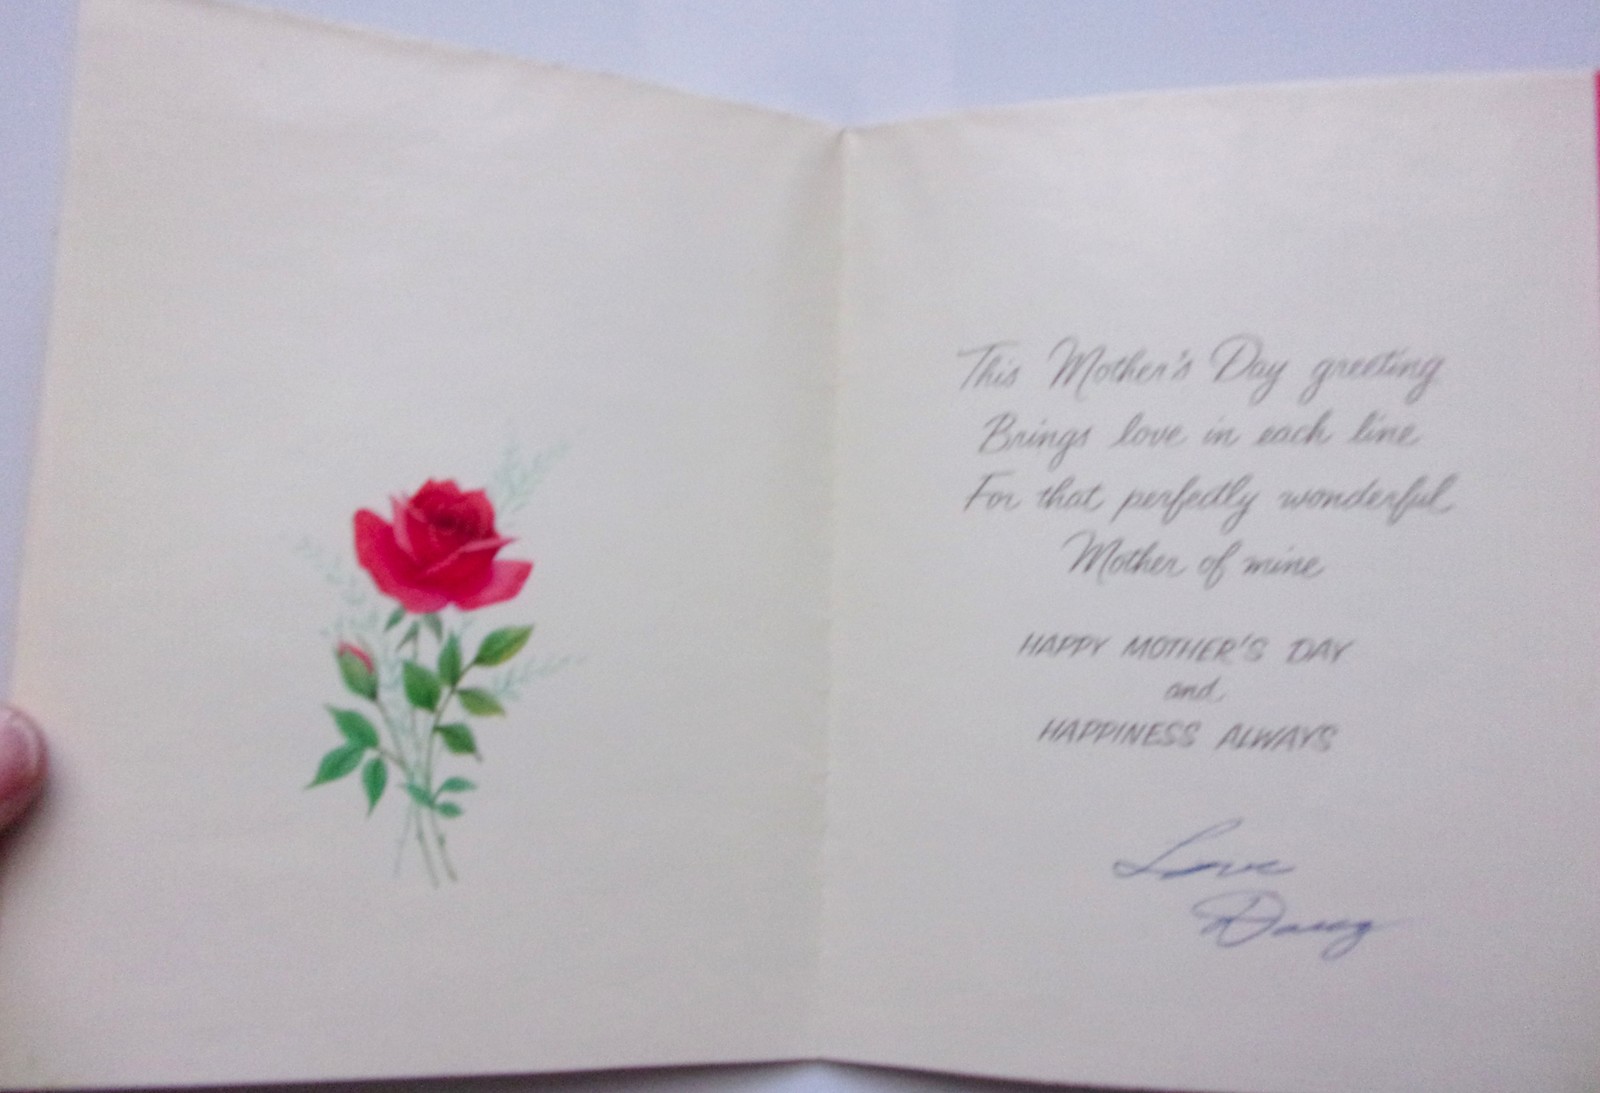 This Mother's Day greeting
Brings love in each line
For that perfectly wonderful
Mother of mine
HAPPY MOTHER'S DAY
and
HAPPINESS ALWAYS
Love